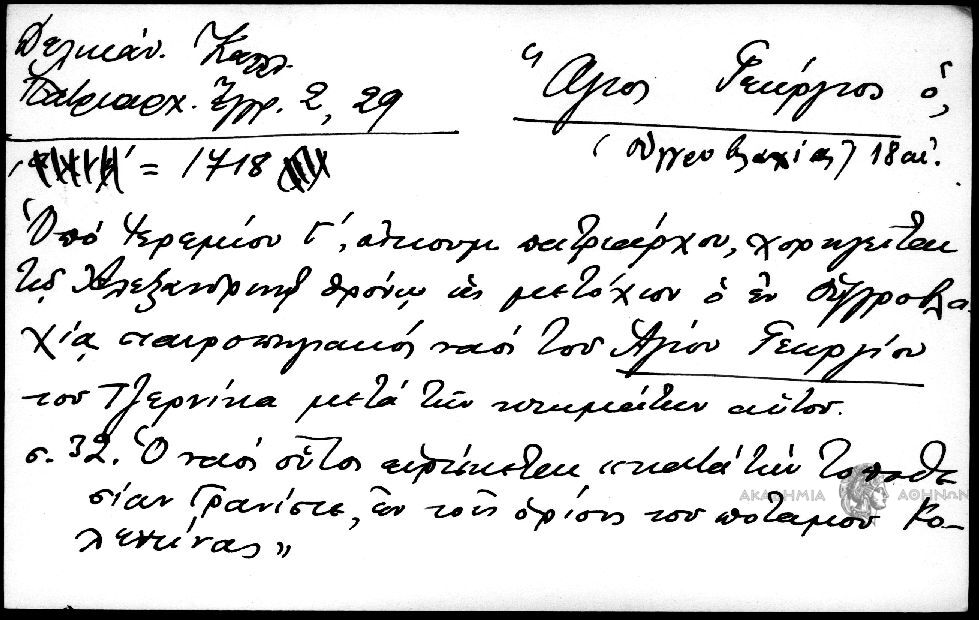 Δελικάν. Καλλ.
Πατριαρχ. Ἔγγρ. 2, 29
"Άγιος Γεώργιος ὁ,
= 1718
(Οὑγγροβλαχίας) 18 αἰ.
Ὑπό Ἱερεμίου Γ', οἰκουμ. πατριάρχου, χορηγεῖται
τῷ Ἀλεξανδρινῷ θρόνῳ ὡς μετόχιον ὁ ἐν Οὑγγροβλα-
χίᾳ σταυροπηγιακός ναός τοῦ Ἁγίου Γεωργίου
τοῦ Τζερνίκα μετά τῶν κτημάτων αὐτοῦ.
σ. 32. Ὁ ναός οὗτος εὑρίσκεται "κατά τήν τοποθε
σίαν Γρανίστε, ἐν τοῖς ὁρίοις τοῦ ποταμοῦ Κο-
λεντίνας"
ΑΚΑΔΗΜΙΑ ΑΘΗΝΩΝ